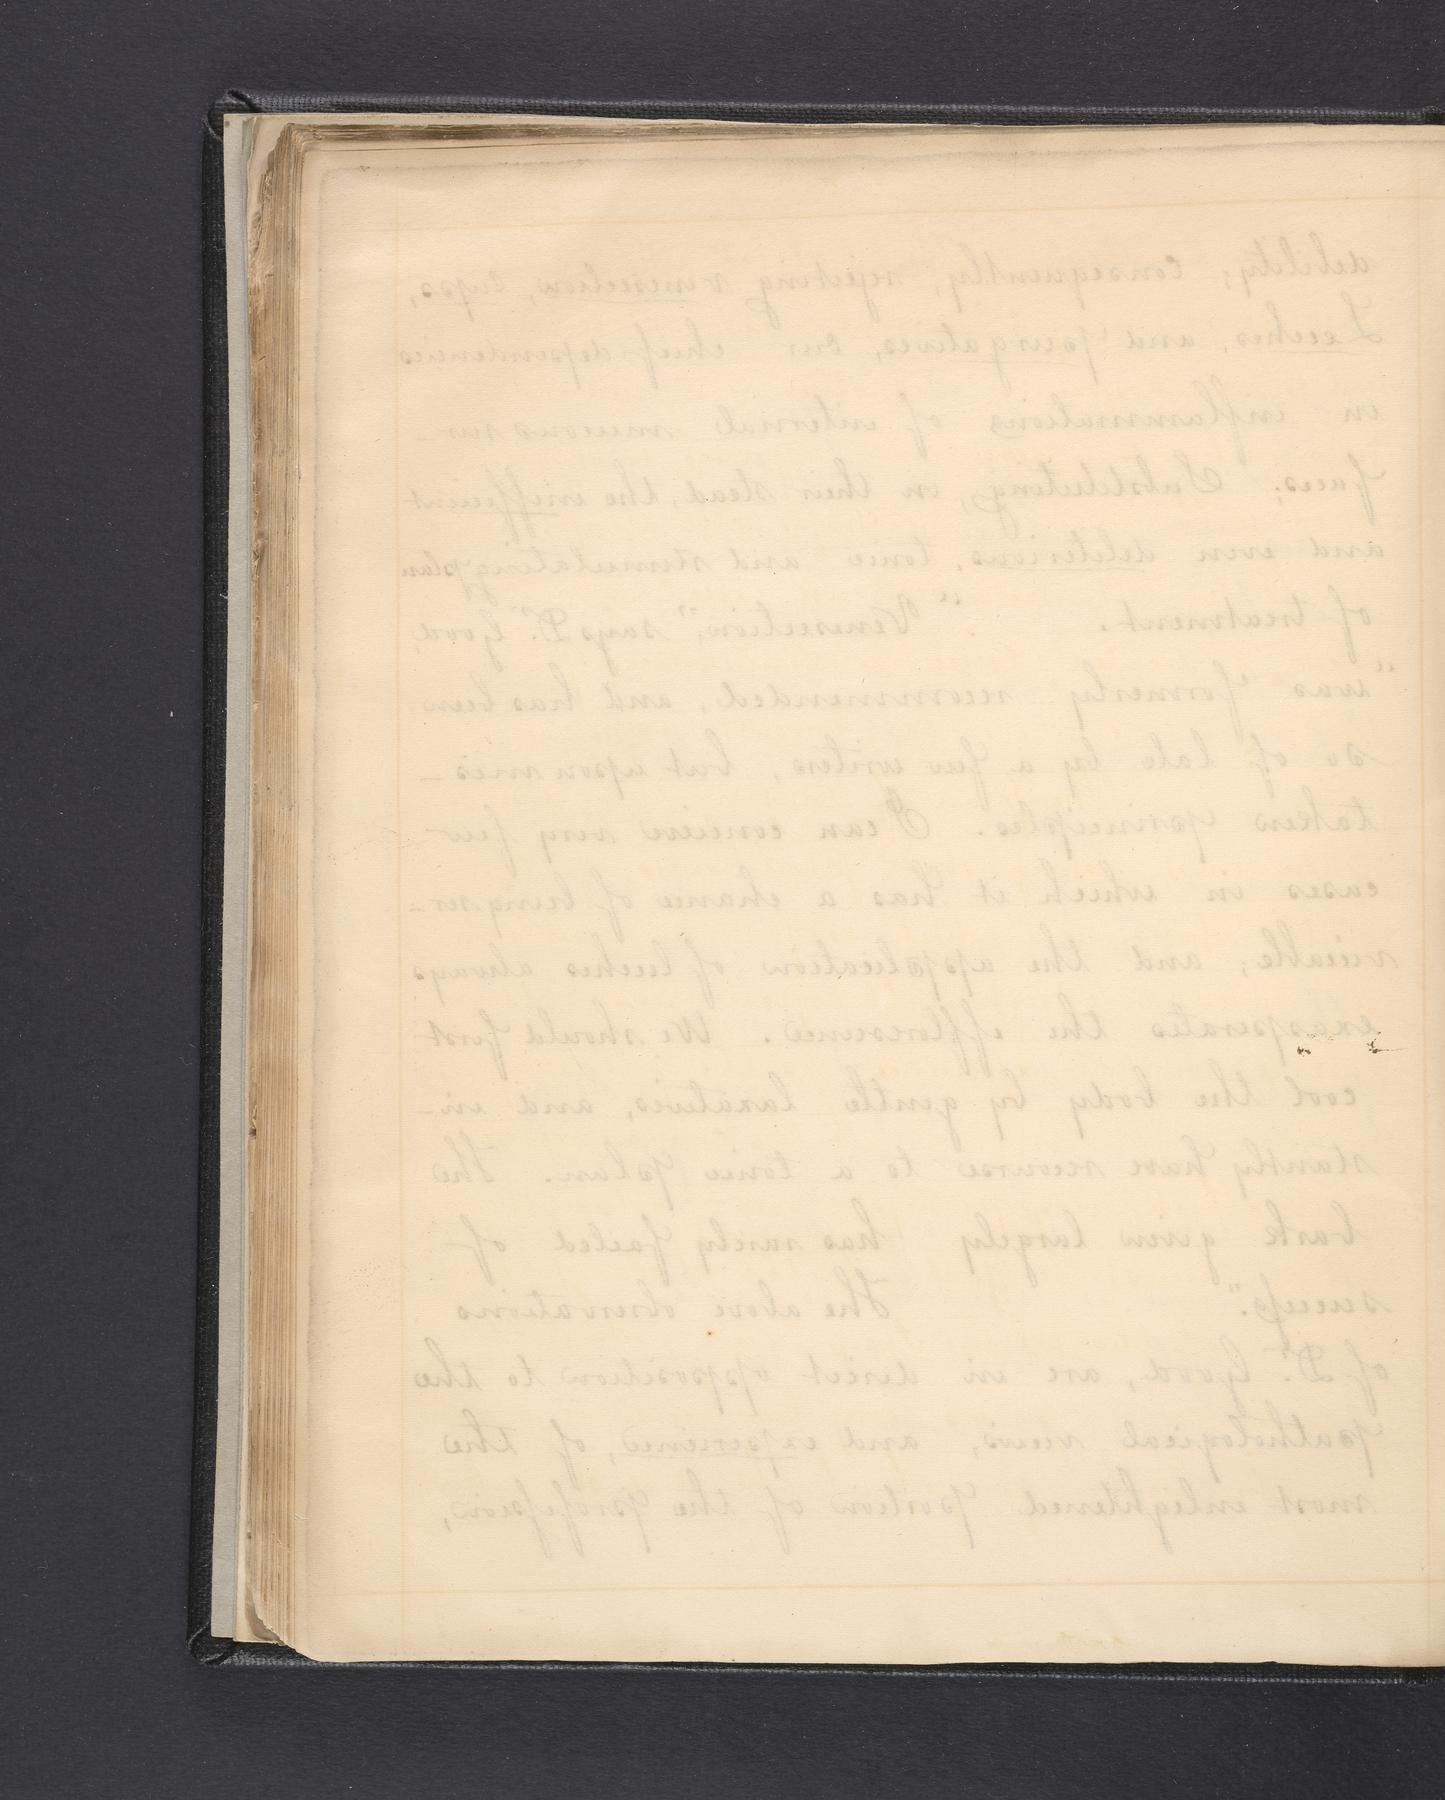 debility; consequently, rejecting venesection, cups,
Leeches, and purgatives, our chief dependencies
in inflammations of internal mucous sur-
faces; Substituting, in their stead, the inefficient
and even deleterious, tonic and stimulating plan
of treatment. "Venesection", says Dr. Good,
"was formerly recommended, and has been
so of late by a few writers, but upon mis-
taken principles. I can conceive very few
cases in which it has a chance of being ser-
viceable; and the application of leeches always
exasperates the efflorescence. We should first
cool the body by gentle laxatives, and in-
stantly have recourse to a tonic plan. The
bark given largely has rarely failed of
success." The above observations
of Dr. Good, are in direct opposition to the
pathological views, and experience, of the
most enlightened portion of the profession,